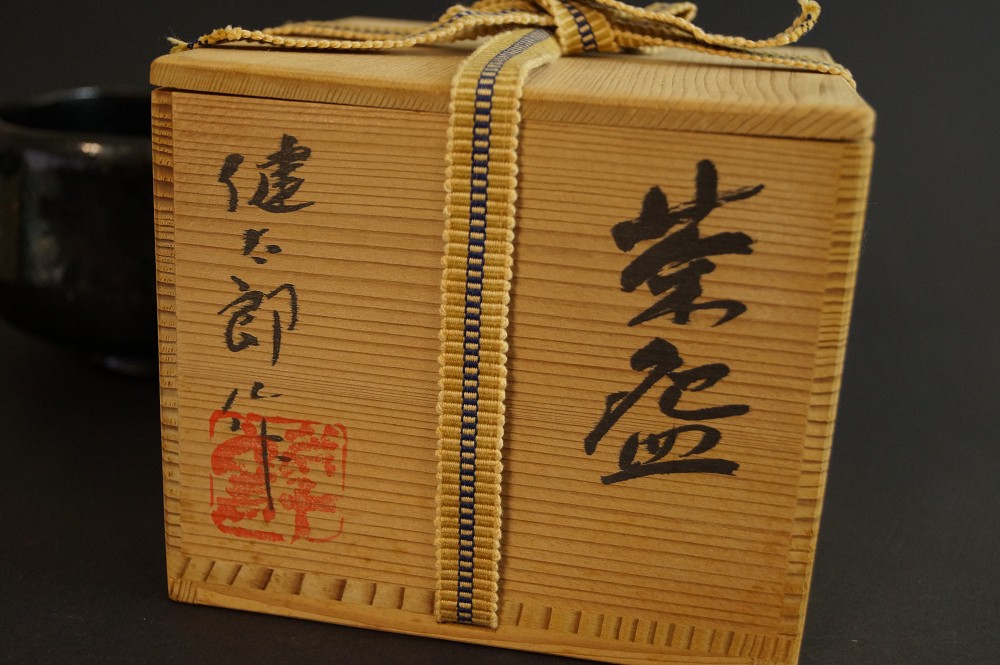 茶盌
健太郎作